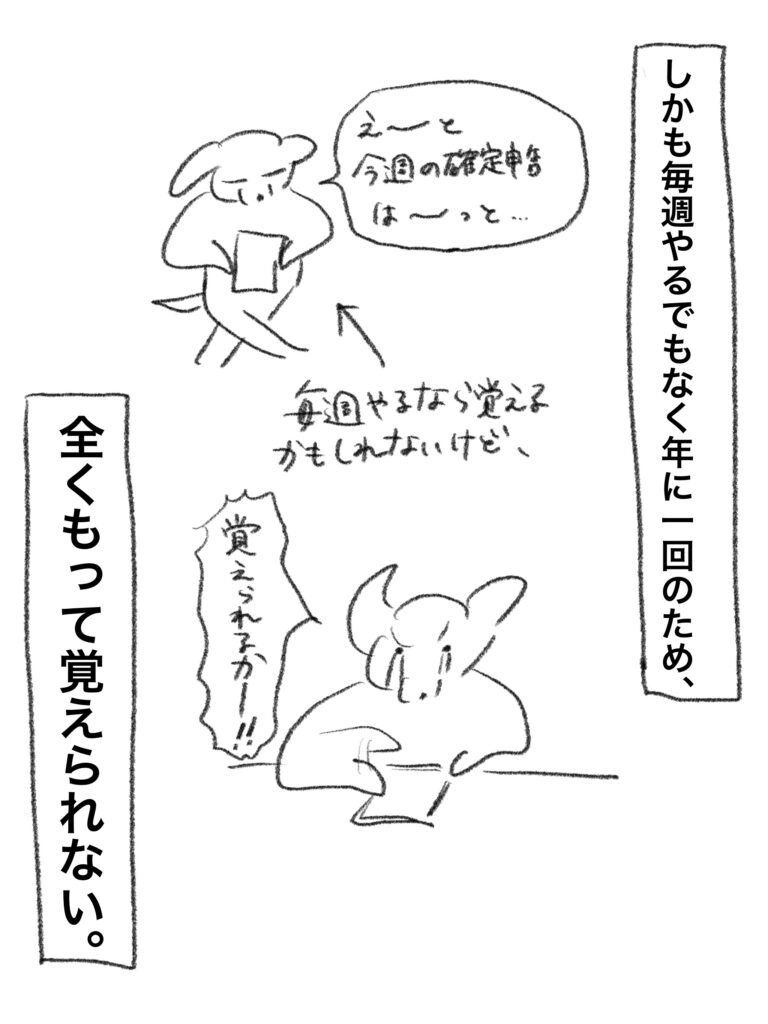 しかも毎週やるでもなく年に一回のため、
え〜と
今週の確定申告
は〜っと…
毎週やるなら覚える
かもしれないけど、
覚えられるかー!!
全くもって覚えられない。